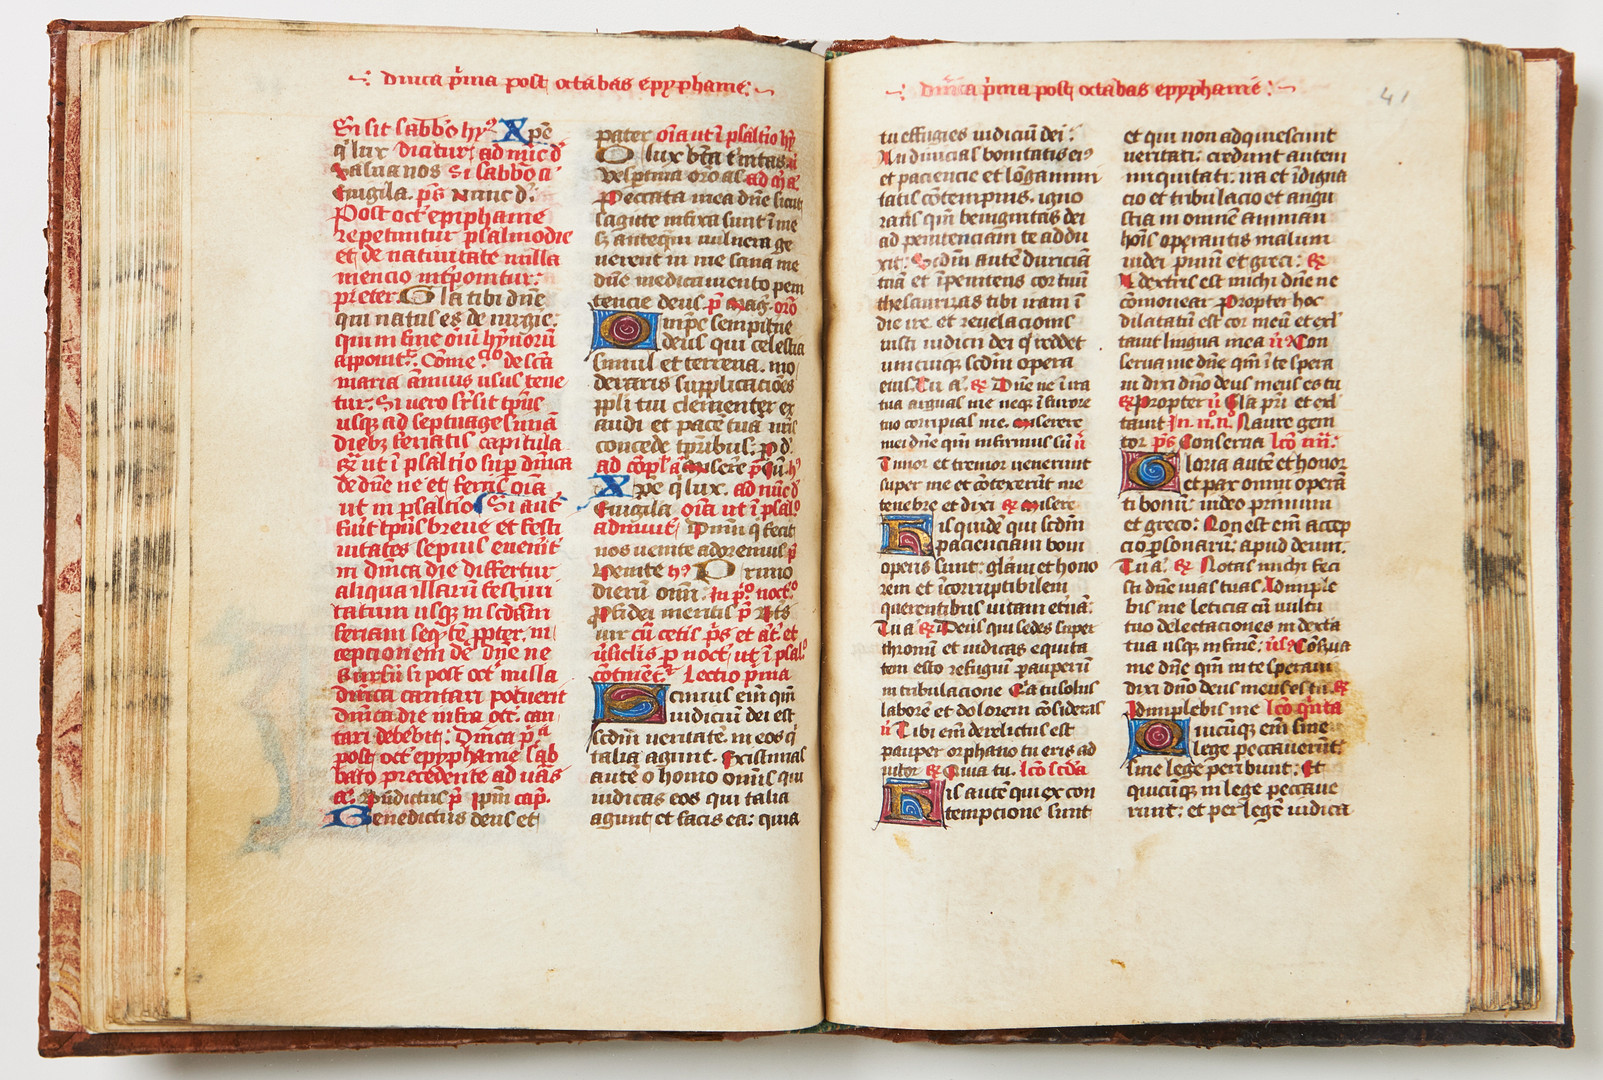 dnica p̄ma post octabas epyphanie:
Si sit sabb̄o hy⁹ Xpē
q̄ lux dicitur; ad nūc d̄
Salua nos Si sabb̄o
Euigila. p̄s Nunc d̄.
Post oct̄ epiphanie
repetuntur psalmodie
et de natiuitate nulla
mencio int̄ponitur:
preter Gla tibi dn̄e
qui natus es de uirgīe:
qui in fine om̄ hymnorū
apponit̄. Cōme de sc̄a
maria
tur. Si uero sit tp̄us
usq; ad septuagesimā
dieb; ferialis capitula
ut ī psaltīo sup dn̄ica
de dn̄e ne et feriis oīa
ut in psaltīo Si aut̄
fuit tp̄us breue et festi
uitates sepius euenit̄
in dn̄ica die differtur
aliqua illarū festiui
tatum usq; in scd̄am
feriam seq̄ntē ppter in
cepcionem de dn̄e ne
si post oct̄ nulla
dn̄ica cantari potuerit
dn̄ica die infra oct̄. can
tari debebit: Dn̄ica p̄ᵃ
post oct̄ epyphanie sab
bato precedente ad uās
Bn̄dictus p̄ ip̄m cap̄.
Benedictus deus et
pater oīa ut ī psaltīo hȳ
O lux bt̄a t̄nitas
Vesp̄tina oro ad
Peccata mea dn̄e sicut
sagitte infixa sunt ī me
sȝ anteq̄m uulnera ge
nerent in me sana me
dn̄e medicamento peni
tencie deus p̄ mag. oro
Omp̄s sempit̄ne
deus qui celestia
simul et terrena. mo
deraris supplicaciōes
ppli tui clementer ex
audi et pacē tuā nr̄is
concede tp̄ribus. p d̄.
ad cōpl̄ a miserē
Xpē q̄ lux. ad nūc d̄
Euigila oīa ut ī psal⁰
Dn̄m q̄ fecit
nos uenite adoremus p̄
Venite hȳ Primo
dierū om̄. In p̄⁰ noct⁰
Pfidei meritis p̄ Bt̄s
uir cū cet̄is p̄s et at̄ et
ūsiclis p noct̄ ut ī psal⁰
Lectio p̄ma
Scimus em̄ qm̄
iudiciū dei est
scd̄m ueritatē in eos q̄
talia agunt. Existimas
autē o homo om̄is qui
iudicas eos qui talia
agunt et facis ea: quia
dnica p̄ma post octabas epyphanie:
41
tu effugies iudiciū dei:
An diuicias bonitatis ei⁹
et paciencie et lōganimi
tatis cōtempnis. igno
rans qm̄ benignitas dei
ad penitenciam te addu
xit: Scd̄m autē duriciā
tuā et īpenitens cor tuū
thesaurizas tibi iram ī
die ire et reuelacionis
iusti iudicii dei q̄ reddet
unicuiq; scd̄m opera
eius. Tu a. Dn̄e ne ī ira
tua arguas me neq; ī furore
tuo corripias me. Miserere
mei dn̄e qm̄ infirmus sū ū
Timor et tremor uenerunt
super me et cōtexerūt me
tenebre et dixi Misere
His quidē qui scd̄m
pacienciam boni
operis sunt: glām et hono
rem et īcorruptibilem
querentibus uitam et̄nā:
Tu a Deus qui sedes super
thronū et iudicas equita
tem esto refugiū pauperū
in tribulacione Qa tu solus
laborē et dolorem cōsideras
ū Tibi em̄ derelictus est
pauper orphano tu eris ad
iutor Quia tu. lc̄o scd̄a
His autē qui ex con
tempcione sunt
et qui non adquiescunt
ueritati: credunt autem
iniquitati: ira et īdigna
cio et tribulacio et angu
stia in omnē animam
hōis operantis malum
iudei primū et greci:
A dextris est michi dn̄e ne
cōmouear Propter hoc
dilatatū est cor meū et exl̄
tauit lingua mea ū Con
serua me dn̄e qm̄ ī te spera
ui dixi dn̄o deus meus es tu
Propter ū Gla pr̄i et exl̄
tauit In ii⁰ n⁰ Naure gem
tor p̄s Conserua lc̄o iii:
Gloria autē et honor
et pax omni operā
ti bonū: iudeo primum
et greco: Non est em̄ accep
cio p̄sonarū: apud deum.
Tu a. Notas michi feci
sti dn̄e uias tuas Adimple
bis me leticia cū uultu
tuo delectaciones in dext̄a
tua usq; in finē: ūs Cōs̄ua
me dn̄e qm̄ in te speraui
dixi dn̄o deus meus es tu
Adimplebis me lc̄o q̄nta
Quicūq; em̄ sine
lege peccauerūt
sine lege peribunt: Et
quicūq; in lege peccaue
runt: et per legē iudica